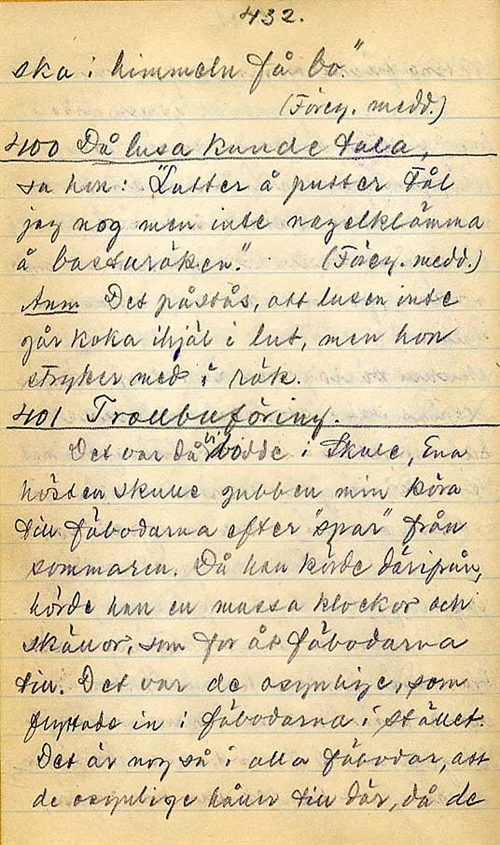 432.
ska i himmeln få bo."
(Föreg. medd.)
400 Då lusa kunde tala,
sa hon: "Lutter å putter tål
jag nog men inte nagelklämma
å basturöken." (Föreg. medd.)
Anm Det påstås, att lusen inte
går koka ihjäl i lut, men hon
stryker med i rök.
401 Trollbuföring.
Det var då vi bodde i Skule, Ena
hösten skulle gubben min köra
till fäbodarna efter "spar" från
sommaren. Då han körde därifrån,
hörde han en massa klockor och
skällor, som for åt fäbodarna
till. Det var de osynlige, som
flyttade in i fäbodarna i stället.
Det är nog så i alla fäbodar, att
de osynlige håller till där, då de